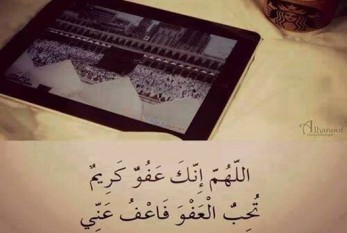 Alhanouf
اللّهُمّ إِنّكَ عَفُوٌ كَرِيمٌ
تُحِبُّ الْعَفْوَ فَاعْفُ عَنِّي